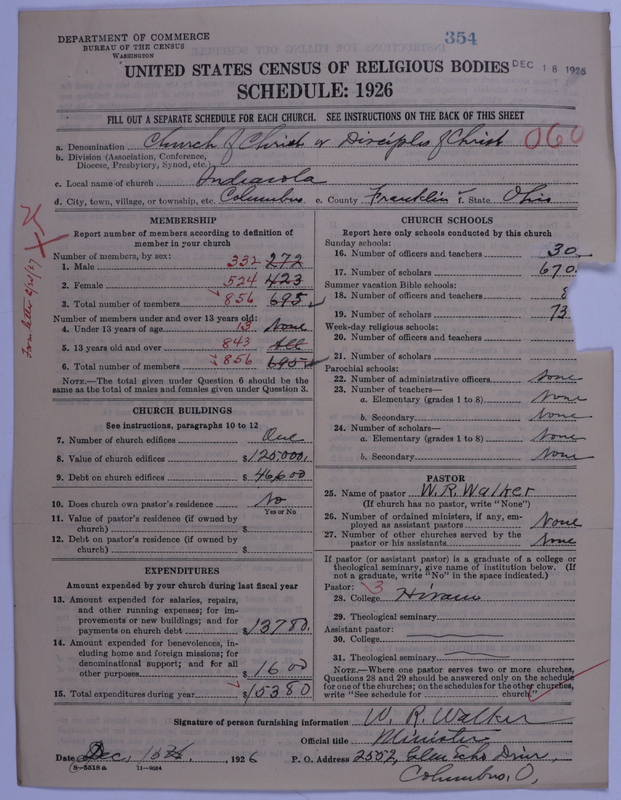 DEPARTMENT OF COMMERCE
BUREAU OF THE CENSUS
WASHINGTON
354
DEC 18 1926
UNITED STATES CENSUS OF RELIGIOUS BODIES
SCHEDULE: 1926
FILL OUT A SEPARATE SCHEDULE FOR EACH CHURCH. SEE INSTRUCTIONS ON THE BACK OF THIS SHEET
a. Denomination Church of Christ or Disciples of Christ 060
b. Division (Association, Conference,
Diocese, Presbytery, Synod, etc.)
c. Local name of church Indianola
d. City, town, village, or township, etc. Columbus e. County Franklin f. State Ohio
MEMBERSHIP
Report number of members according to definition of
member in your church
Number of members, by sex:
1. Male 332 272
2. Female 524 423
3. Total number of members 856 695
Number of members under and over 13 years old:
4. Under 13 years of age 13 None
5. 13 years old and over 843 All
6. Total number of members 856 695
NOTE.—The total given under Question 6 should be the
same as the total of males and females given under Question 3.
From letter 6/21/27
CHURCH BUILDINGS
See instructions, paragraphs 10 to 12
7. Number of church edifices One
8. Value of church edifices $125000.
9. Debt on church edifices $46600
10. Does church own pastor's residence No
Yes or No
11. Value of pastor's residence (if owned by
church) $
12. Debt on pastor's residence (if owned by
church) $
EXPENDITURES
Amount expended by your church during last fiscal year
13. Amount expended for salaries, repairs,
and other running expenses; for im-
provements or new buildings; and for
payments on church debt $13780.
14. Amount expended for benevolences, in-
cluding home and foreign missions; for
denominational support; and for all
other purposes $1600
15. Total expenditures during year $15380
CHURCH SCHOOLS
Report here only schools conducted by this church
Sunday schools:
16. Number of officers and teachers 30
17. Number of scholars 670
Summer vacation Bible schools:
18. Number of officers and teachers 8
19. Number of scholars 73
Week-day religious schools:
20. Number of officers and teachers
21. Number of scholars
Parochial schools:
22. Number of administrative officers None
23. Number of teachers—
a. Elementary (grades 1 to 8) None
b. Secondary None
24. Number of scholars—
a. Elementary (grades 1 to 8) None
b. Secondary None
PASTOR
25. Name of pastor W. R. Walker
(If church has no pastor, write "None")
26. Number of ordained ministers, if any, em-
ployed as assistant pastors None
27. Number of other churches served by the
pastor or his assistants None
If pastor (or assistant pastor) is a graduate of a college or
theological seminary, give name of institution below. (If
not a graduate, write "No" in the space indicated.)
Pastor: 3
28. College Hiram
29. Theological seminary
Assistant pastor:
30. College
31. Theological seminary
NOTE.—Where one pastor serves two or more churches,
Questions 28 and 29 should be answered only on the schedule
for one of the churches; on the schedules for the other churches,
write "See schedule for church."
Signature of person furnishing information W. R. Walker
Official title Minister
Date Dec. 15th, 1926 P. O. Address 2552, Glen Echo Drive,
8—5518a 11—9054
Columbus, O.